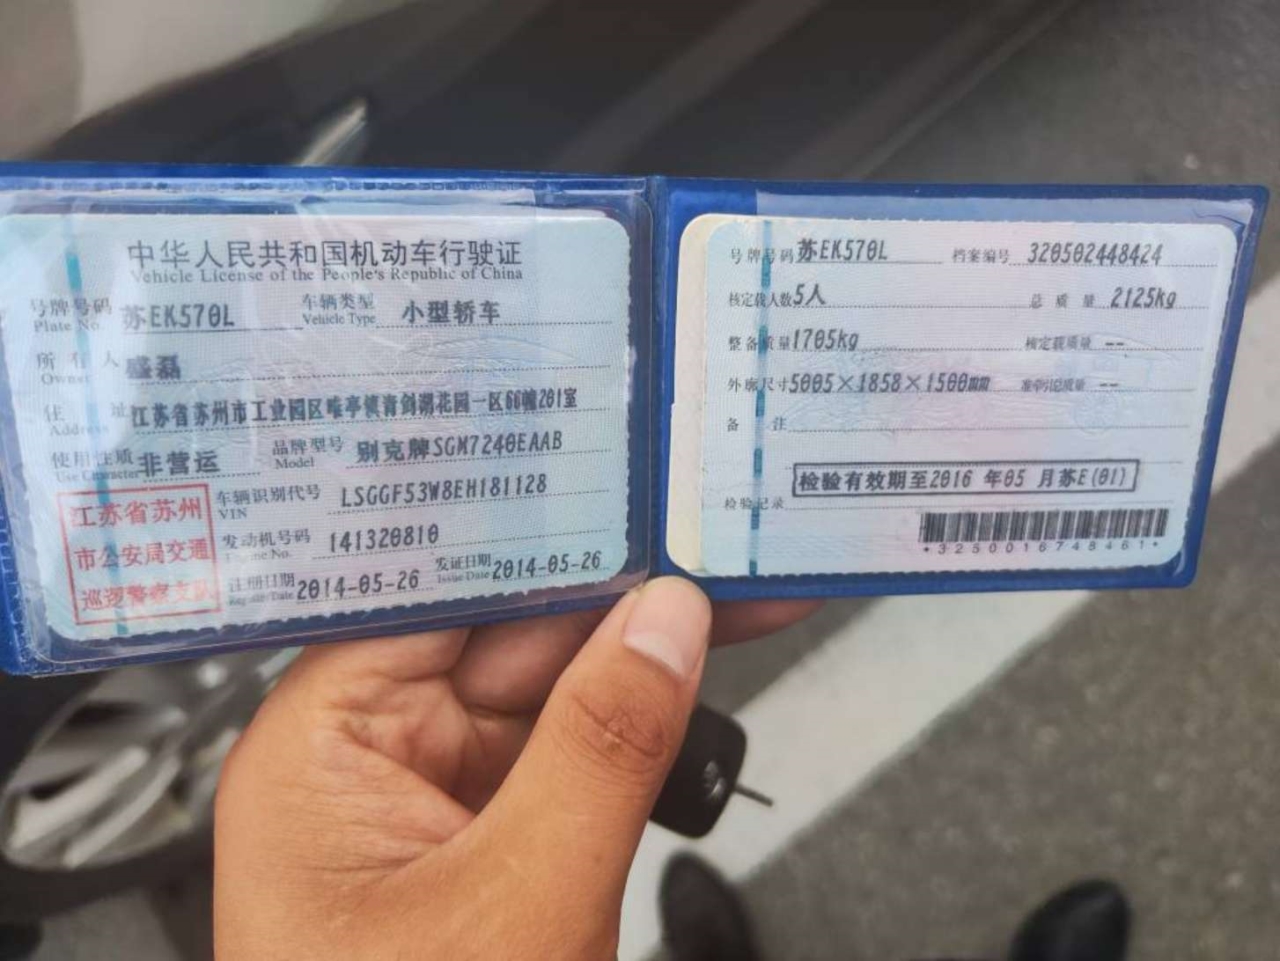 中华人民共和国机动车行驶证
Vehicle License of the People's Republic of China
号牌号码 苏EK570L 车辆类型 小型轿车
Plate No. Vehicle Type
所有人 盛磊
Owner
住址 江苏省苏州市工业园区唯亭镇青剑湖花园一区66幢201室
Address
使用性质 非营运 品牌型号 别克牌SGM7240EAAB
Use Character Model
江苏省苏州
市公安局交通
巡逻警察支队
车辆识别代号 LSGGF53W8EH181128
VIN
发动机号码 141320810
Engine No.
注册日期 2014-05-26 发证日期 2014-05-26
Register Date Issue Date
号牌号码 苏EK570L 档案编号 320502448424
核定载人数 5人 总质量 2125kg
整备质量 1705kg 核定载质量 --
外廓尺寸 5005×1858×1500mm 准牵引总质量 --
备注
检验有效期至2016 年05 月苏E(01)
检验记录
*3250016748461*